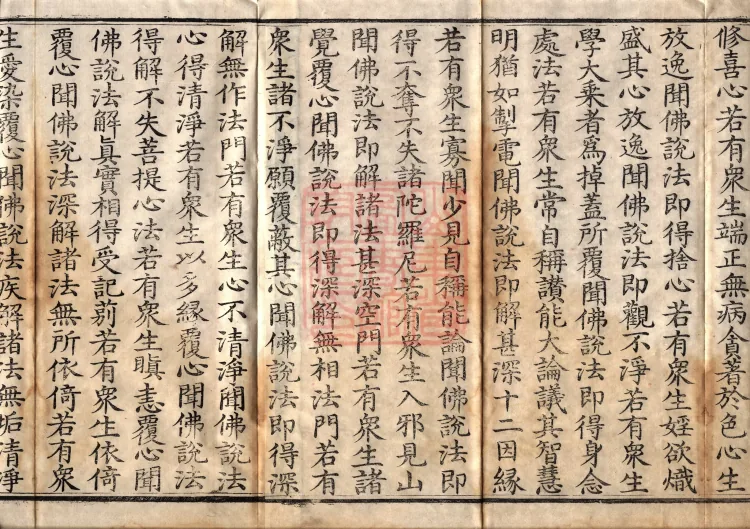 修喜心若有衆生端正無病貪著於色心生
放逸聞佛說法即得捨心若有衆生婬欲熾
盛其心放逸聞佛說法即觀不淨若有衆生
學大乘者爲掉蓋所覆聞佛說法即得身念
處法若有衆生常自稱讃能大論議其智慧
明猶如掣電聞佛說法即解甚深十二因緣
若有衆生寡聞少見自稱能論聞佛說法即
得不奪不失諸陀羅尼若有衆生入邪見山
聞佛說法即解諸法甚深空門若有衆生諸
覺覆心聞佛說法即得深解無相法門若有
衆生諸不淨願覆蔽其心聞佛說法即得深
解無作法門若有衆生心不清淨聞佛說法
心得清淨若有衆生以多緣覆心聞佛說法
得解不失菩提心法若有衆生瞋恚覆心聞
佛說法解眞實相得受記莂若有衆生依倚
覆心聞佛說法深解諸法無所依倚若有衆
生愛染覆心聞佛說法疾解諸法無垢清淨